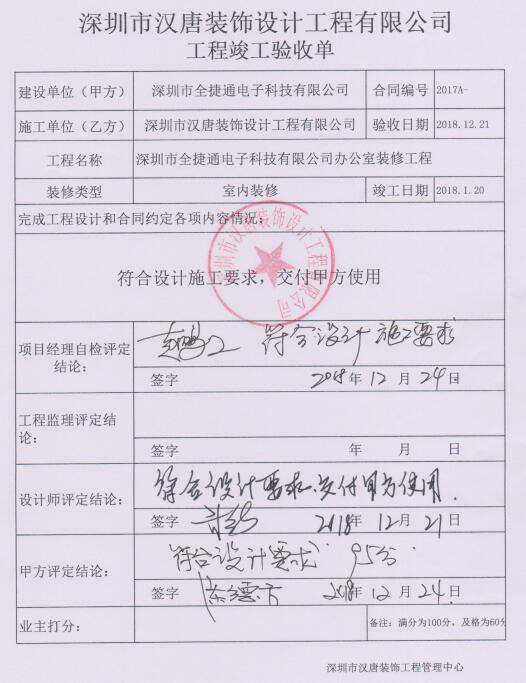 深圳市汉唐装饰设计工程有限公司
工程竣工验收单
建设单位（甲方） 深圳市全捷通电子科技有限公司 合同编号 2017A-
施工单位（乙方） 深圳市汉唐装饰设计工程有限公司 验收日期 2018.12.21
工程名称 深圳市全捷通电子科技有限公司办公室装修工程
装修类型 室内装修 竣工日期 2018.1.20
完成工程设计和合同约定各项内容情况：
深圳市汉唐装饰设计工程有限公司
符合设计施工要求，交付甲方使用
项目经理自检评定
结论：
符合设计施工要求
签字 2018年12月24日
工程监理评定结
论：
签字 年 月 日
设计师评定结论：
符合设计要求、交付甲方使用.
签字 2018年12月21日
甲方评定结论：
符合设计要求 95分
签字 2018年12月24日
业主打分： 备注：满分为100分，及格为60分
深圳市汉唐装饰工程管理中心